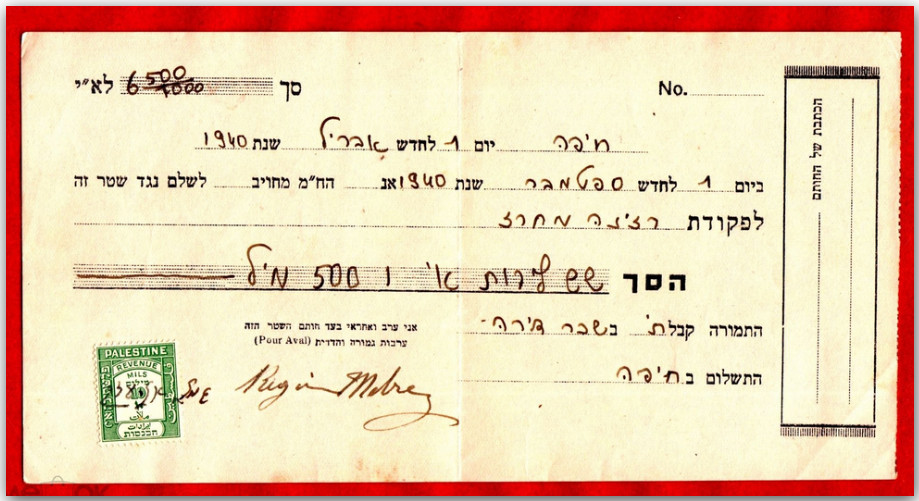 סך 6 500/1000 לא״י
No.
חיפה יום 1 לחדש אבריל שנת 1940
ביום 1 לחדש ספטמבר שנת 1940 אנ הח״מ מחויב לשלם נגד שטר זה
לפקודת רז׳ינה מחרז
הסך שש לירות א״י ו 500 מיל
התמורה קבלתי בשכר דירה
התשלום בחיפה
אני ערב ואחראי בעד חותם השטר הזה
ערבות גמורה והדדית (Pour Aval)
הכתבת של החותם
PALESTINE
REVENUE
MILS
הכנסות